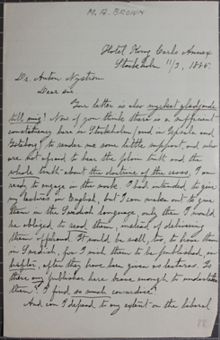 M. A. BROWN
Hotel Kung Carls Annex
Stockholm 11/3, 1888.
Dr. Anton Nyström
Dear sir
Your letter is also mycket glädjande
till mig! Now if you think there is a sufficient
constituency here in Stockholm (and in Upsala and
Göteborg) to render me some little support, and who
are not afraid to hear the plain truth and the
whole truth about this doctrine of the cross, I am
ready to engage in the work. I had intended to give
my lectures in English, but I can make out to give
them in the Swedish language, only then I would
be obliged to read them, instead of delivering
them offhand. It would be well, too, to have them
in Swedish, for I wish them to be published, in
after they have been given as lectures. Is
there any publisher here brave enough to undertake
them? I find so much cowardice!
And can I depend to any extent on the liberal